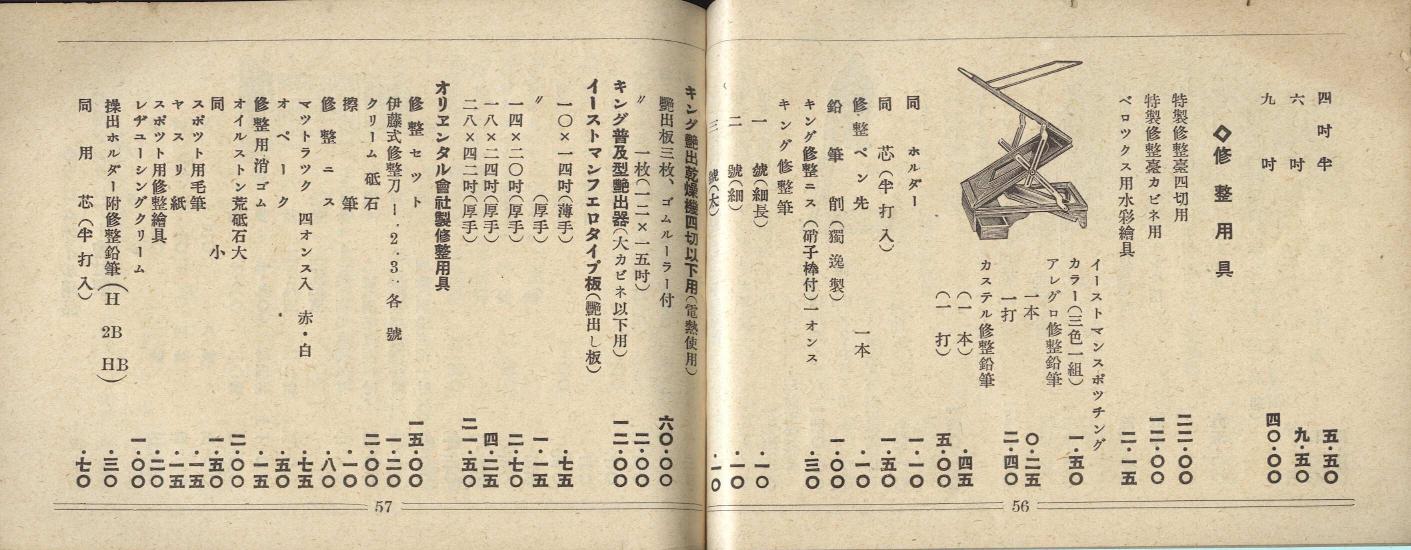 四吋半 五・五〇
六吋 九・五〇
九吋 四〇・〇〇
◇修整用具
特製修整臺四切用 二二・〇〇
特製修整臺カビネ用 一二・〇〇
ベロツクス用水彩繪具 二・一五
イーストマンスポツチング
カラー(三色一組) 一・五〇
アレグロ修整鉛筆
一本 〇・二五
一打 二・四〇
カステル修整鉛筆
(一本) ・四五
(一打) 五・〇〇
同 ホルダー 一・一〇
同 芯(半打入) 一・五〇
修整ペン先 一本 ・一〇
鉛筆削(獨逸製) 一・〇〇
キング修整ニス(硝子棒付)一オンス ・三〇
キング修整筆
一號(細長) ・一〇
二號(細) ・一〇
三號(太) ・一〇
56
キング艷出乾燥機四切以下用(電熱使用)
艷出板三枚、ゴムルーラー付 六〇・〇〇
〃 一枚(一二×一五吋) 二・〇〇
キング普及型艷出器(大カビネ以下用) 一二・〇〇
イーストマンフエロタイプ板(艷出し板)
一〇×一四吋(薄手) ・七五
〃 (厚手) 一・一五
一四×二〇吋(厚手) 二・七〇
一八×二四吋(厚手) 四・二五
二八×四二吋(厚手) 二一・五〇
オリヱンタル會社製修整用具
修整セツト 一五・〇〇
伊藤式修整刀 1.2.3.各號 一・二〇
クリーム砥石 二・〇〇
擦筆 ・一〇
修整ニス ・八〇
マツトラツク 四オンス入 赤・白 ・七五
オペーク ・五〇
修整用消ゴム ・一五
オイルストン荒砥石大 二・〇〇
同 小 一・五〇
スポツト用毛筆 ・一五
ヤスリ紙 ・一五
スポツト用修整繪具 ・二〇
レヂユーシングクリーム 一・〇〇
操出ホルダー附修整鉛筆(H 2B HB) ・三〇
同用芯(半打入) ・七〇
57